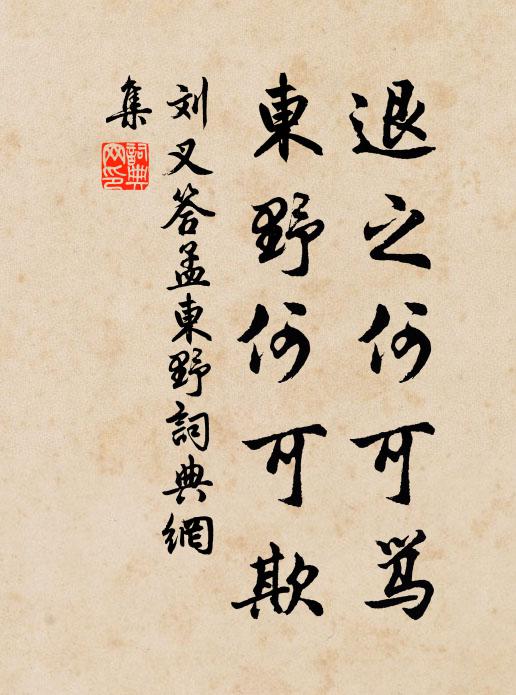 退之何可骂
東野何可欺
刘叉答孟東野詞典網
集
詞典
网印